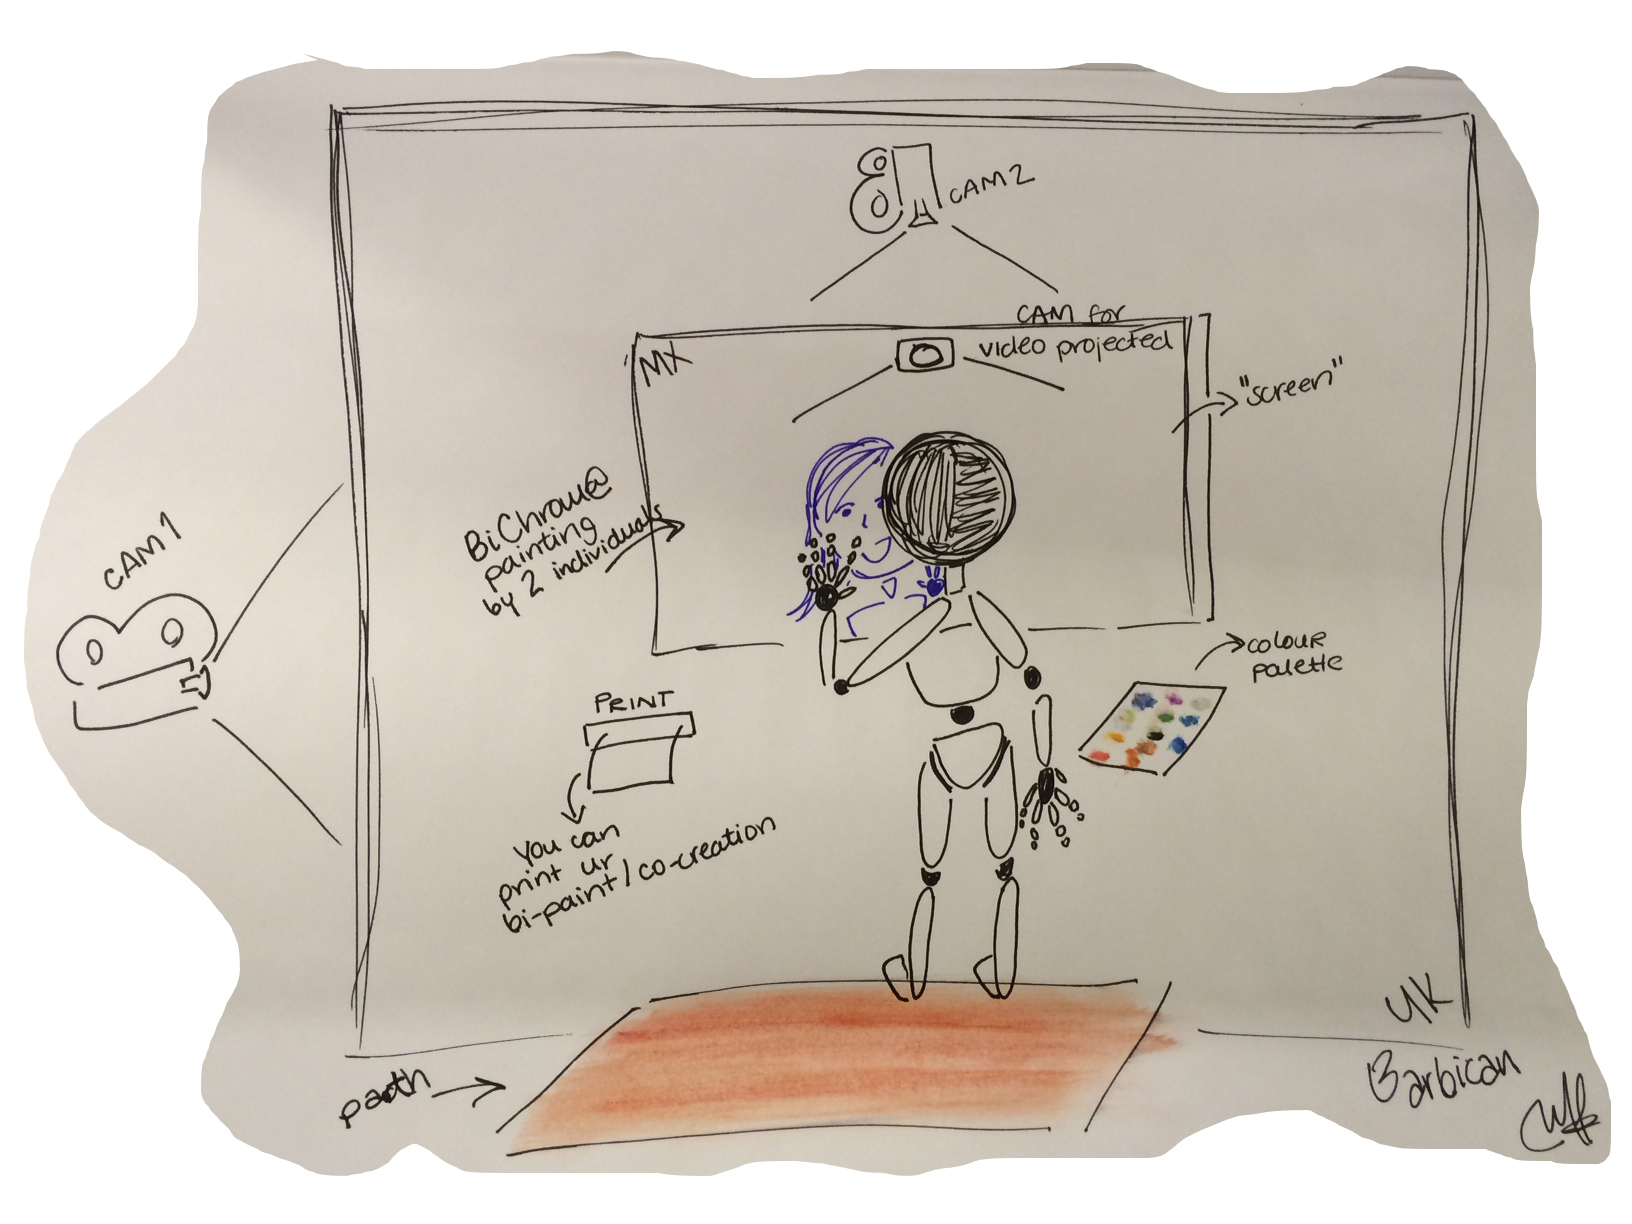 CAM 2
CAM for
video projected
MX
"screen"
BiChrom@
painting
by 2 individuals
CAM 1
colour
palette
PRINT
You can
print ur
bi-paint/co-creation
UK
Barbican
path